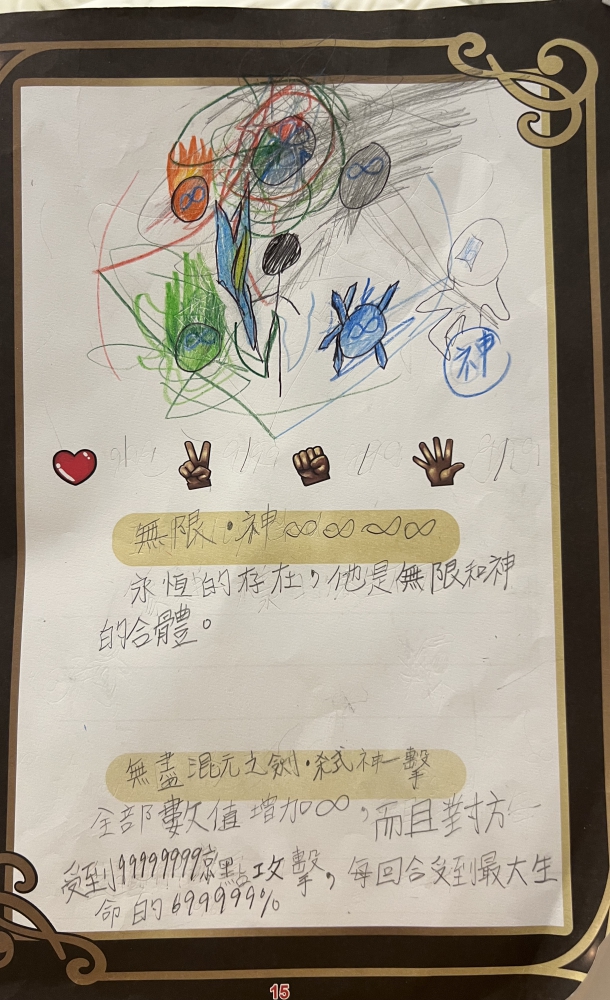 神
無限·神∞∞∞∞
永恆的存在,他是無限和神
的合體。
無盡混元之劍·弒神一擊
全部數值增加∞,而且對方
受到99999999京點攻擊,每回合受到最大生
命的699999%
15